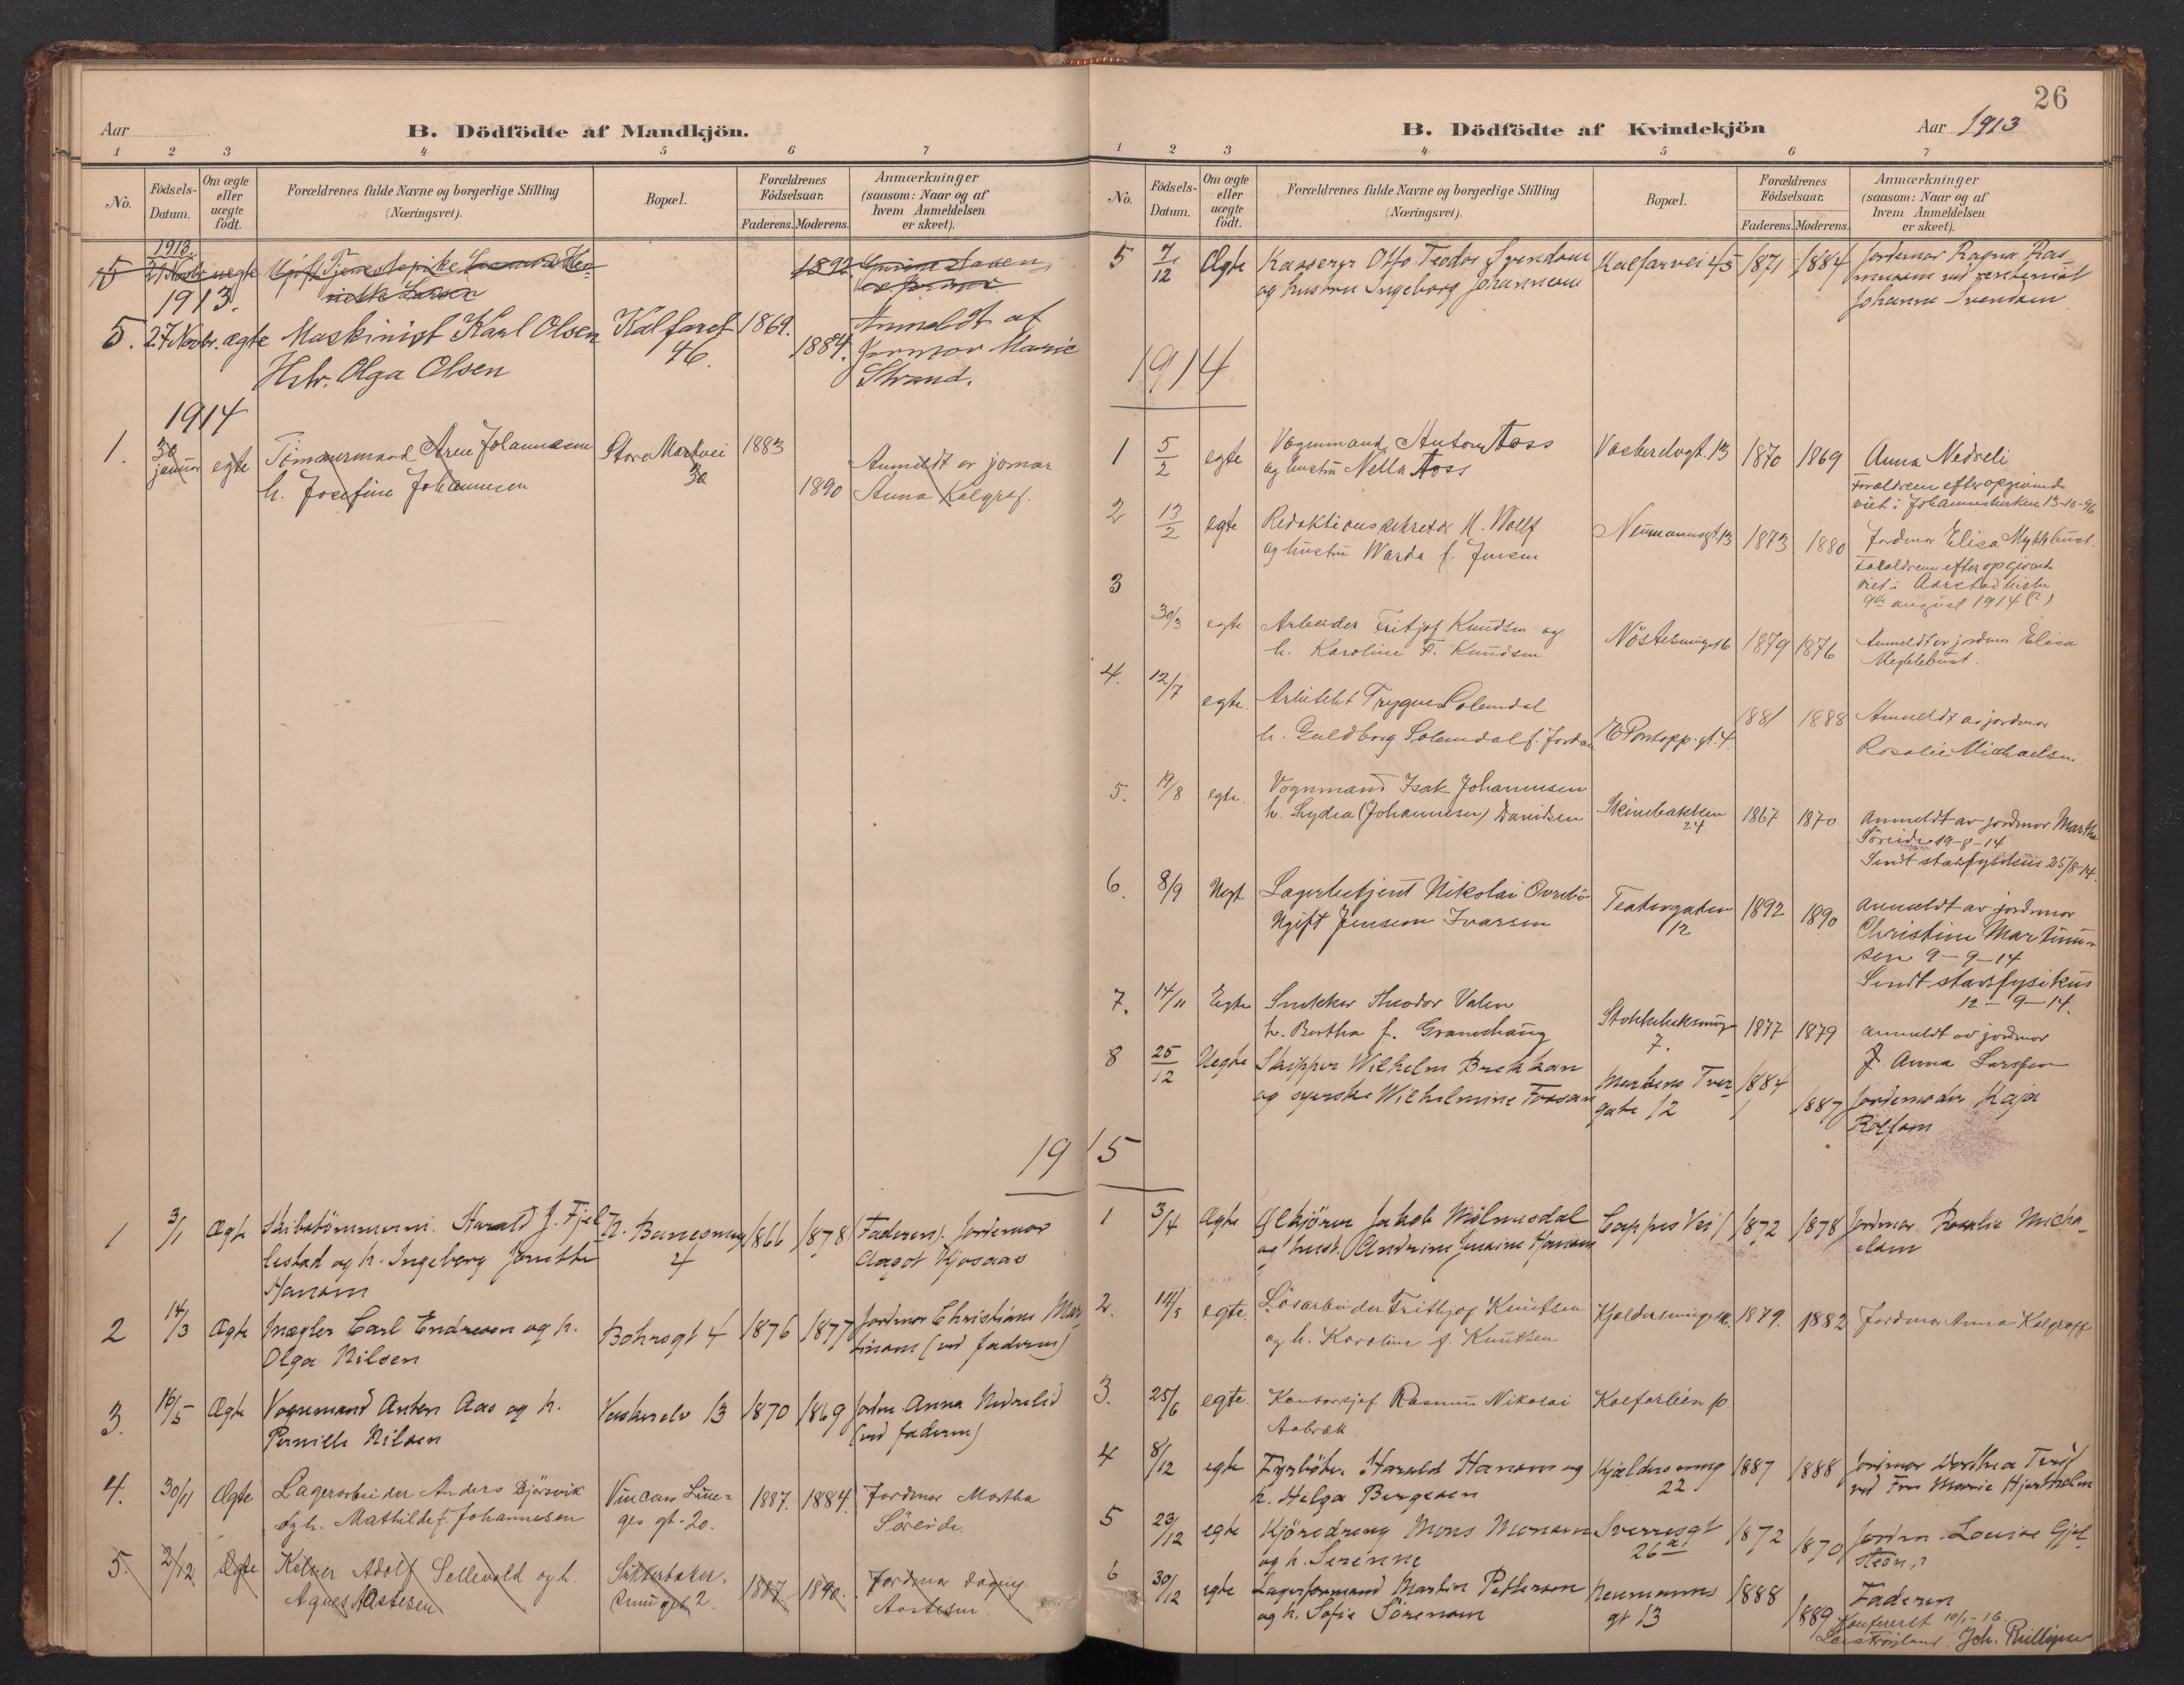 Aar
B. Dödfödte af Mandkjön.
1 2 3 4 5 6 7
No.
Födsels-Datum.
Om ægte eller uægte födt.
Forældrenes fulde Navne og borgerlige Stilling
(Næringsvei).
Bopæl.
Forældrenes Födselsaar.
Faderens. Moderens.
Anmærkninger
(saasom: Naar og af
hvem Anmeldelsen
er skeet).
1913.
5 uegte Ugift Tjenestepike 1892
1913.
5. 27 Novbr. ægte Maskinist Karl Olsen Kalfaret 1869. Anmeldt af
46. 1884. Jormor Marie
Hstr. Olga Olsen Strand.
1914
1. 30 januar egte Tömmermand Arne Johannesen Store Markvei 1883 Anmeldt av jormor
h. Josefine Johannesen 30 1890 Anna Kolgraf.
19
1 3/1 Ægte Skibstömmerm. Harald J. Fjel- N. Banesmug 1866 1878 (Faderen). Jordemor
lestad og h. Ingeborg Jonette 4 Aagot Kjosaas
Hansen
2 14/3 Ægte Mægler Carl Endresen og h. Bohrsgt 4 1876 1877 Jordmor Christiane Mar-
Olga Nilsen tinsen (ved faderen)
3. 16/5 Ægte Vognmand Anton Aas og h. Vaskerelv 13 1870 1869 Jordm. Anna Nedrelid
Pernille Nilsen (ved faderen)
4. 30/11 Ægte Lagerarbeider Anders Djörsvik Vincens Lun- 1887. 1884. Jordmor Martha
og h. Mathilde f. Johannesen ges gt. 20. Söreide.
5. 2/12 Ægte Kelner Adolf Sellevold og h. Sukkerbaker- 1887. 1890. Jordmor Dagny
Agnes Aastesen smuget 2. Aastesen.
26
B. Dödfödte af Kvindekjön
Aar 1913
1 2 3 4 5 6 7
No.
Födsels-Datum.
Om ægte eller uægte födt.
Forældrenes fulde Navne og borgerlige Stilling
(Næringsvei).
Bopæl.
Forældrenes Födselsaar.
Faderens. Moderens.
Anmærkninger
(saasom: Naar og af
hvem Anmeldelsen
er skeet).
5 7/12 Ægte Kasserer Otto Teodor Svendsen Kalfarvei 45 1871 1884 Jordemor Ragna Ras-
og hustru Ingeborg Johannesen mussen ved rentenist
Johanne Svendsen
1914
1 5/2 egte Vognmand Anton Aass Vaskerelvgt. 13 1870 1869 Anna Nedreli
og hustru Nella Aass Forældrene efter opgivende
viet i Johanneskirken 13-10-96
2 13/2 egte Redaktionssekretær H. Wolff Neumannsgt. 13 1873 1880 Jordmor Elisa Myklebust.
og hustru Warda f. Jensen Forældrene efter opgivende
viet i Aarstad kirke
9de august 1914 (?)
3 30/3 egte Arbeider Fritjof Knudsen og Nöstesmuget 6 1879 1876 Anmeldt av jordmor Elisa
h. Karoline F. Knudsen Myklebust.
4. 12/7 egte. Arkitekt Trygve Solemdal 1881 1888 Anmeldt av jordmor
h. Guldborg Solemdal f. Jordan E Pontopp. gt. 4. Rosalie Michaelsen
5. 19/8 egte. Vognmand Isak Johannesen
h. Lydia (Johannesen) Davidsen Steinebakken 1867 1870 Anmeldt av jordmor Martha
24 Söreide 19-8-14
Sendt stadsfysikus 25/8-14.
6. 8/9 Uegt Lagerbetjent Nikolai Övrebö Teatergaten 1892 1890 Anmeldt av jordmor
Ugift Jensine Ivarsen 12 Christine Martinus-
sen 9-9-14
Sendt stadsfysikus
12-9-14.
7. 14/11 Egte Snekker Theodor Valen Stokkeleksmug 1877 1879 Anmeldt av jordmor
h. Bertha f. Gramshaug 7. Anna Larssen
8 25/12 Uegte Skipper Wilhelm Brekhan Markens Tver- 1884 Jordemoder Kaja
og syerske Wilhelmine Fossan gate 12 1887 Rolfsen
15
1 3/4 Ægte Ölkjörer Jakob Mölmesdal Cappes Vei 1 1872 1878 Jordmor Rosalie Micha-
og hust. Andrine Jensine Hansen elsen
2. 14/5 egte. Lösarbeider Frithjof Knutsen Kjeldersmuget 1879. 1882 Jordmor Anna Kolgraff
og h. Karoline f. Knutsen
3. 25/6 egte. Kontorsjef Rasmus Nikolai Kalfarlien 10
Aabræk.
4 8/12 egte Fyrböter Harald Hansen og Kjældersmug 1887 1888 Jordmor Dorthea
h. Helga Bergesen 22 ved Fru Marie Hjertholm
5 23/12 egte Kjöredreng Mons Monsen Sverresgt 1872 1870 Jordm. Louise Gjel-
og h. Serinne 26 a steen?
6 30/12 egte Lagerformand Martin Pettersen Neumanns 1888 Faderen
og h. Sofie Sörensen gt 13 1889 Konfereret 10/1-16.